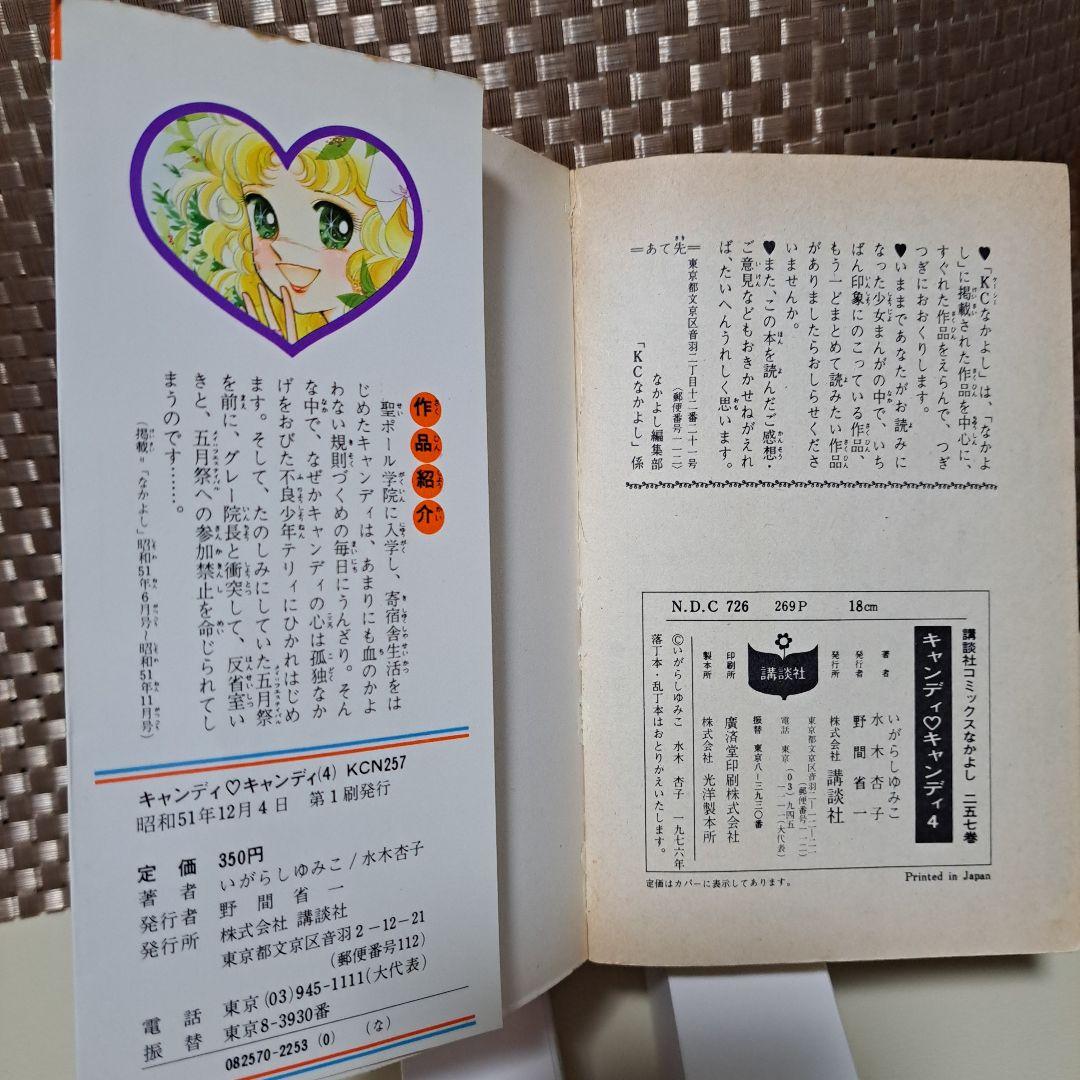 作品紹介
聖ポール学院に入学し、寄宿舎生活をは
じめたキャンディは、あまりにも血のかよ
わない規則づくめの毎日にうんざり。そん
な中で、なぜかキャンディの心は孤独なか
げをおびた不良少年テリィにひかれはじめ
ます。そして、たのしみにしていた五月祭
を前に、グレー院長と衝突して、反省室い
きと、五月祭への参加禁止を命じられてし
まうのです……。
(掲載=「なかよし」昭和51年6月号〜昭和51年11月号)
キャンディ♡キャンディ(4) KCN257
昭和51年12月4日 第1刷発行
定価 350円
著者 いがらしゆみこ/水木杏子
発行者 野間省一
発行所 株式会社 講談社
東京都文京区音羽2-12-21
(郵便番号112)
電話 東京(03)945-1111(大代表)
振替 東京8-3930番
082570-2253 (0) (な)
♥「KCなかよし」は、「なかよ
し」に掲載された作品を中心に、
すぐれた作品をえらんで、つぎ
つぎにおおくりします。
♥いままであなたがお読みに
なった少女まんがの中で、いち
ばん印象にのこっている作品、
もう一どまとめて読みたい作品
がありましたらおしらせくださ
いませんか。
♥また、この本を読んだご感想・
ご意見などもおきかせねがえれ
ば、たいへんうれしく思います。
=あて先=
東京都文京区音羽二丁目十二番二十一号
(郵便番号一一二)
なかよし編集部
「KCなかよし」係
N.D.C 726 269P 18cm
講談社コミックスなかよし 二五七巻
キャンディ♡キャンディ4
著者 いがらしゆみこ
水木杏子
発行者 野間省一
発行所 株式会社 講談社
東京都文京区音羽二-一二-二一
(郵便番号一一二)
電話 東京(03)九四五
一一一一(大代表)
振替 東京八-三九三〇番
講談社
印刷所 廣済堂印刷株式会社
製本所 株式会社 光洋製本所
©いがらしゆみこ 水木杏子 一九七六年
落丁本・乱丁本はおとりかえいたします。
定価はカバーに表示してあります。
Printed in Japan